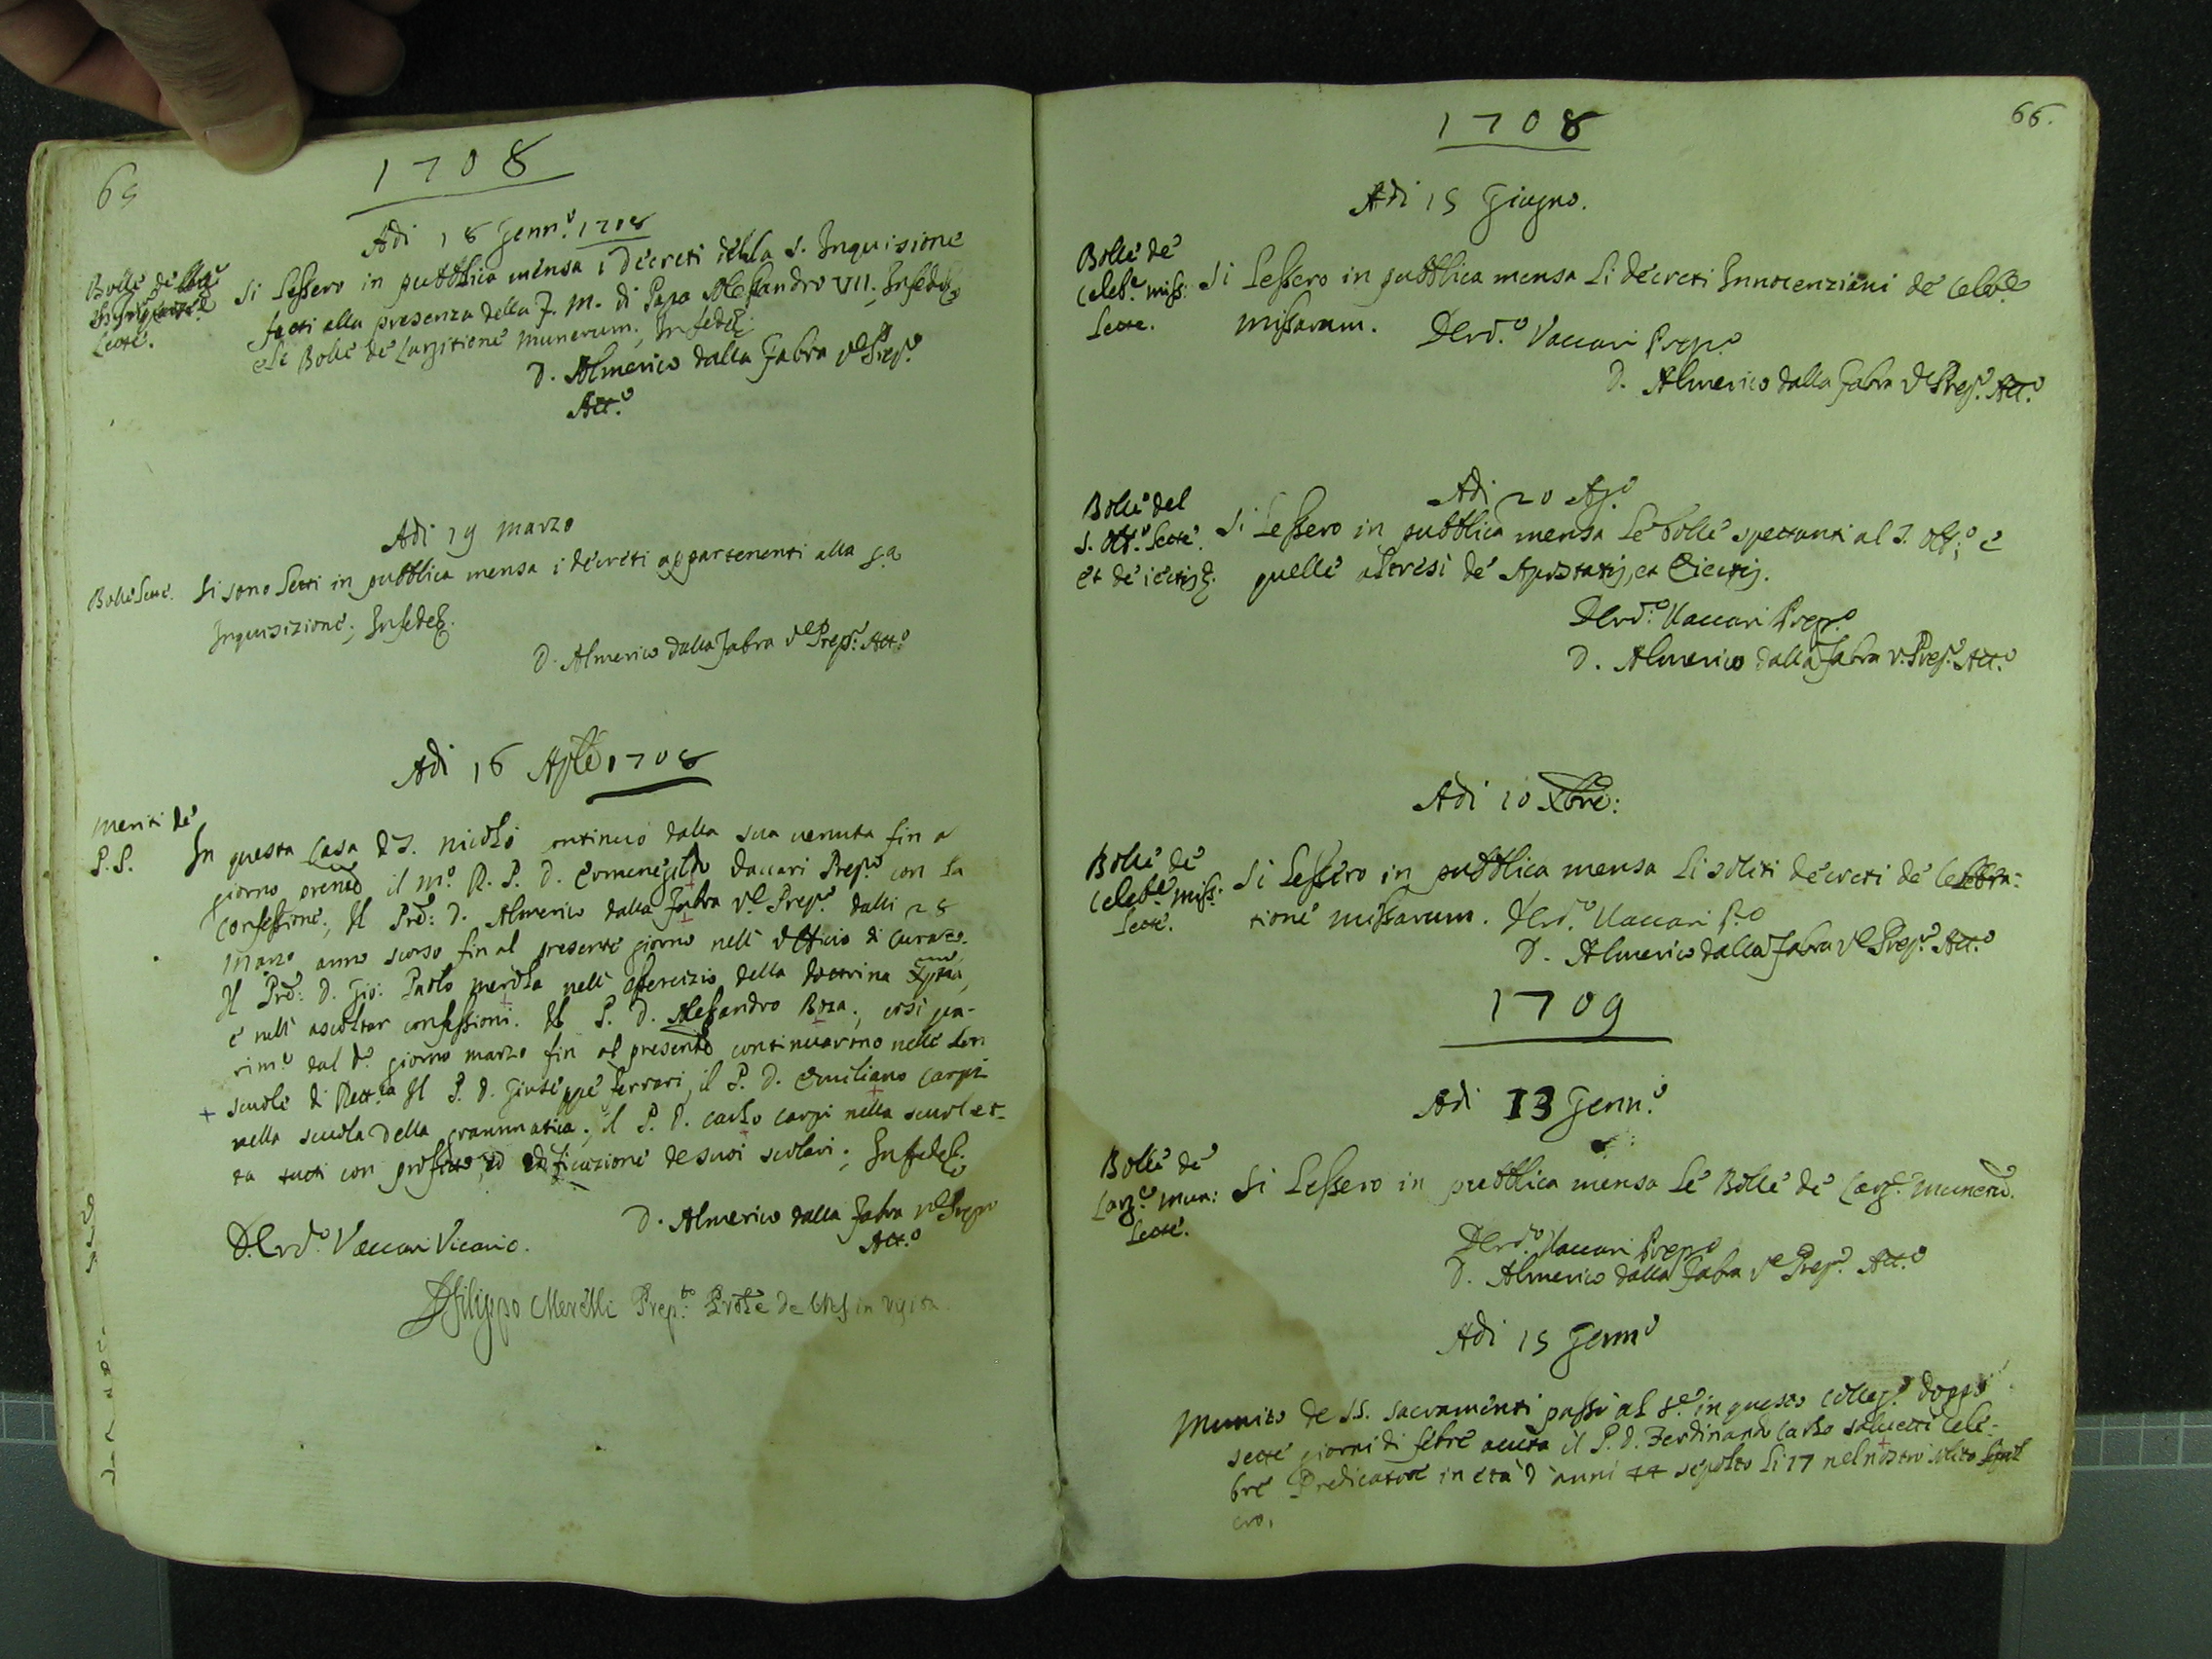 65
1708
Adi 18 Genn.o 1708
Bolle de
Lette.
Si lessero in pubblica mensa i decreti della S. Inquisizione
fatti alla presenza della f. m. di Papa Alessandro VII. In fede &
e le Bolle de Largitione munerum. In fede &
D. Almerico dalla Fabra Ve Prep.o
Att.o
Adi 19 marzo
Bolle lette.
Si sono letti in pubblica mensa i decreti appartenenti alla S.a
Inquisizione; In fede &.
D. Almerico dalla Fabra Ve Prep.o Att.o
Adi 16 Aple 1708
Meriti de
P.P.
In questa Casa di S. Nicolò continuò dalla sua venuta fin al
giorno presente il M.o R. P. D. Ermenegildo Vaccari Prep.o con la
confessione; Il Prē: D. Almerico dalla Fabra Ve Prep.o dalli 28
Marzo anno scorso fin al presente giorno nell' Officio di Curato.
Il Prē: D. Gio: Paolo Merola nell' essercizio della dottrina Xpna,
e nell' ascoltar confessioni. Il P. D. Alessandro Boza; così pa-
rim.e dal d.o giorno marzo fin al presente continuarono nelle lor
scuole di Rett.ca Il P. D. Giuseppe Ferrari, il P. D. Emiliano Carpi
nella scuola della grammatica; il P. D. Carlo Carpi nella scuolet-
ta tutti con profitto, ed edificazione de suoi scolari; In fede &.
D. Almerico dalla Fabra Ve Prep.o
Att.o
D. Erd.o Vaccari Vicario.
D. Filippo Merelli Prep.to Prōle
in Visita
66.
1708
Adi 15 Giugno.
Bolle de
Celeb.e miss:
Lette.
Si lessero in pubblica mensa li decreti Innocenziani de Celebr.e
missarum. D. Erd.o Vaccari Prep.o
D. Almerico dalla Fabra Ve Prep.o Att.o
Adi 20 Ag.o
Bolle del
S. Off.o lette.
et de eiectis &.
Si lessero in pubblica mensa le bolle spettanti al S. Off.o; e
quelle altresì de Apostatis, et Eiectis.
D. Erd.o Vaccari Prep.o
D. Almerico dalla Fabra V. Prep.o Att.o
Adi 10 Xbre:
Bolle de
Celeb.e miss:
Lette.
Si lessero in pubblica mensa li soliti decreti de Celebra:
tione missarum. D. Erd.o Vaccari P.o
D. Almerico dalla Fabra Ve Prep.o Att.o
1709
Adi 13 Genn.o
Bolle de
Larg.e mun:
Lette.
Si lessero in pubblica mensa le Bolle de Larg.e munerū.
D. Erd.o Vaccari Prep.o
D. Almerico dalla Fabra Ve Prep.o Att.o
Adi 15 Genn.o
Munito de SS. Sacramenti passò al S.e in questo Colleg.o doppo
sette giorni di febre acuta il P. D. Ferdinando Carlo Salvetti cele-
bre Predicatore in età d'anni 44 sepolto li 17 nel nostro solito sepol
cro.